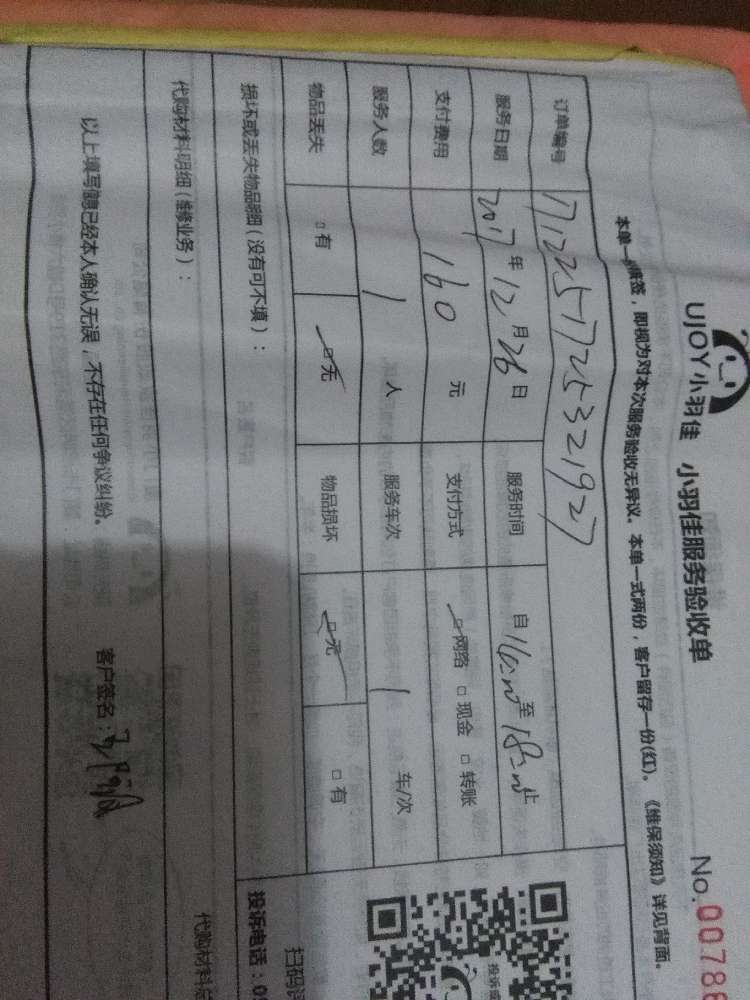 UJOY小羽佳 小羽佳服务验收单 No.00788
本单一经签，即视为对本次服务验收无异议。本单一式两份，客户留存一份(红)。《维保须知》详见背面。
订单编号 1712251725321927
服务日期 2017年12月26日 服务时间 自 至 止
支付费用 160 元 支付方式 网络 □现金 □转账
服务人数 1 人 服务车次 1 车/次
物品丢失 □有 □无 物品损坏 □无 □有
损坏或丢失物品明细(没有可不填)：
投诉电话：
扫码
代购材料明细(维修业务)：
代购材料
以上填写信息已经本人确认无误，不存在任何争议纠纷。 客户签名：